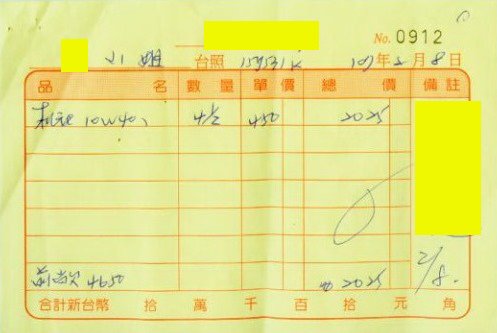 No. 0912
小姐 台照 159531K 107年2月8日
品名 數量 單價 總價 備註
機油 10W40 4½ 450 2025
前尚欠 4650 2025 2/8.
合計新台幣 拾 萬 千 百 拾 元 角